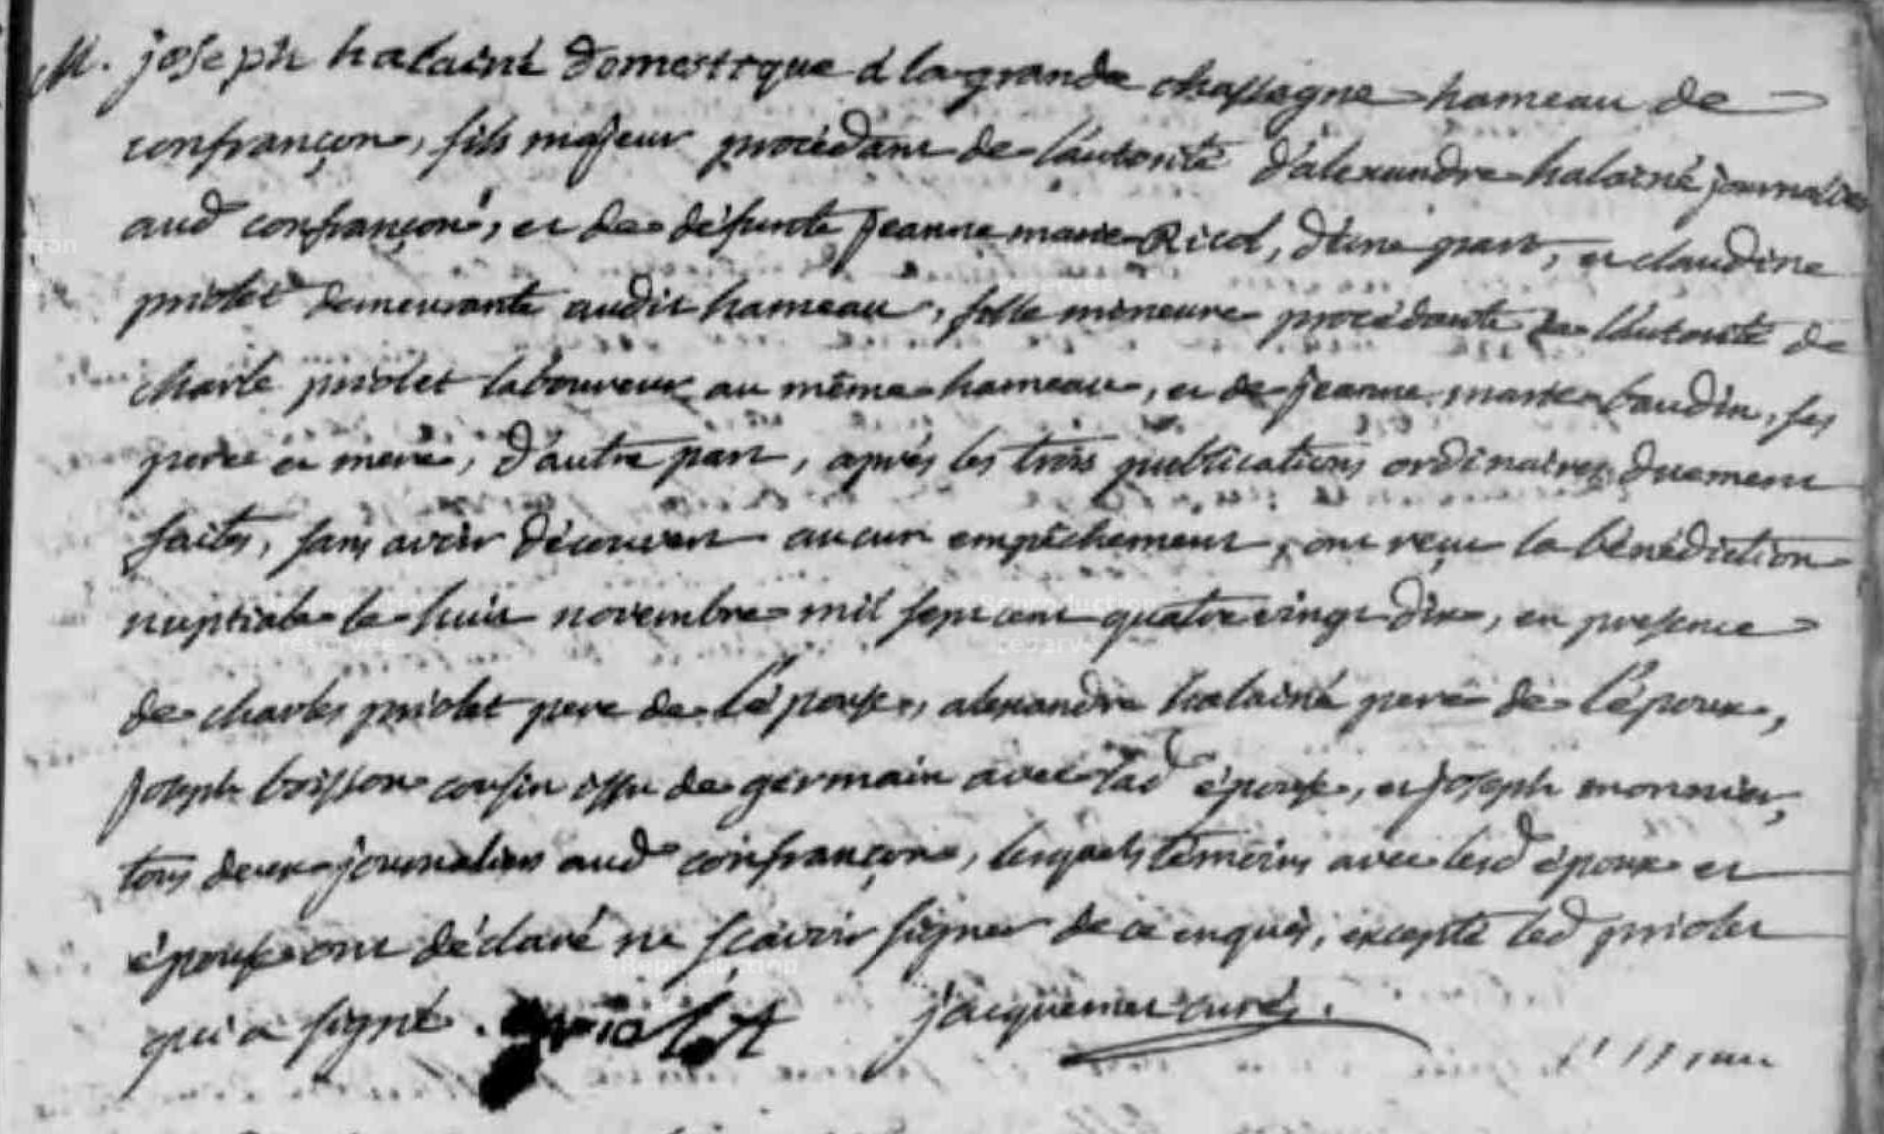 M. joseph halainé domestique à la grande chassagne hameau de
confrançon, fils majeur procédant de l'autorité d'alexandre halainé journalier
aud confrançon, et de défunte jeanne marie Ricol, d'une part, et claudine
priolet demeurante audit hameau, fille mineure procédante de l'autorité de
charle priolet laboureur au même hameau, et de jeanne marie baudin, ses
pere et mere, d'autre part, après les trois publications ordinaires duement
faites, sans avoir découvert aucun empêchement, ont reçu la bénédiction
nuptiale le huit novembre mil sept cent quatre vingt dix, en presence
de charles priolet pere de l'épouse, alexandre halainé pere de l'époux,
joseph boisson cousin issu de germain avec lad épouse, et joseph monnier,
tous deux journaliers aud confrançon, lesquels témoins avec lesd époux et
épouse ont déclaré ne sçavoir signer de ce enquis, excepté led priolet
qui a signé. priolet jacquemet curé.